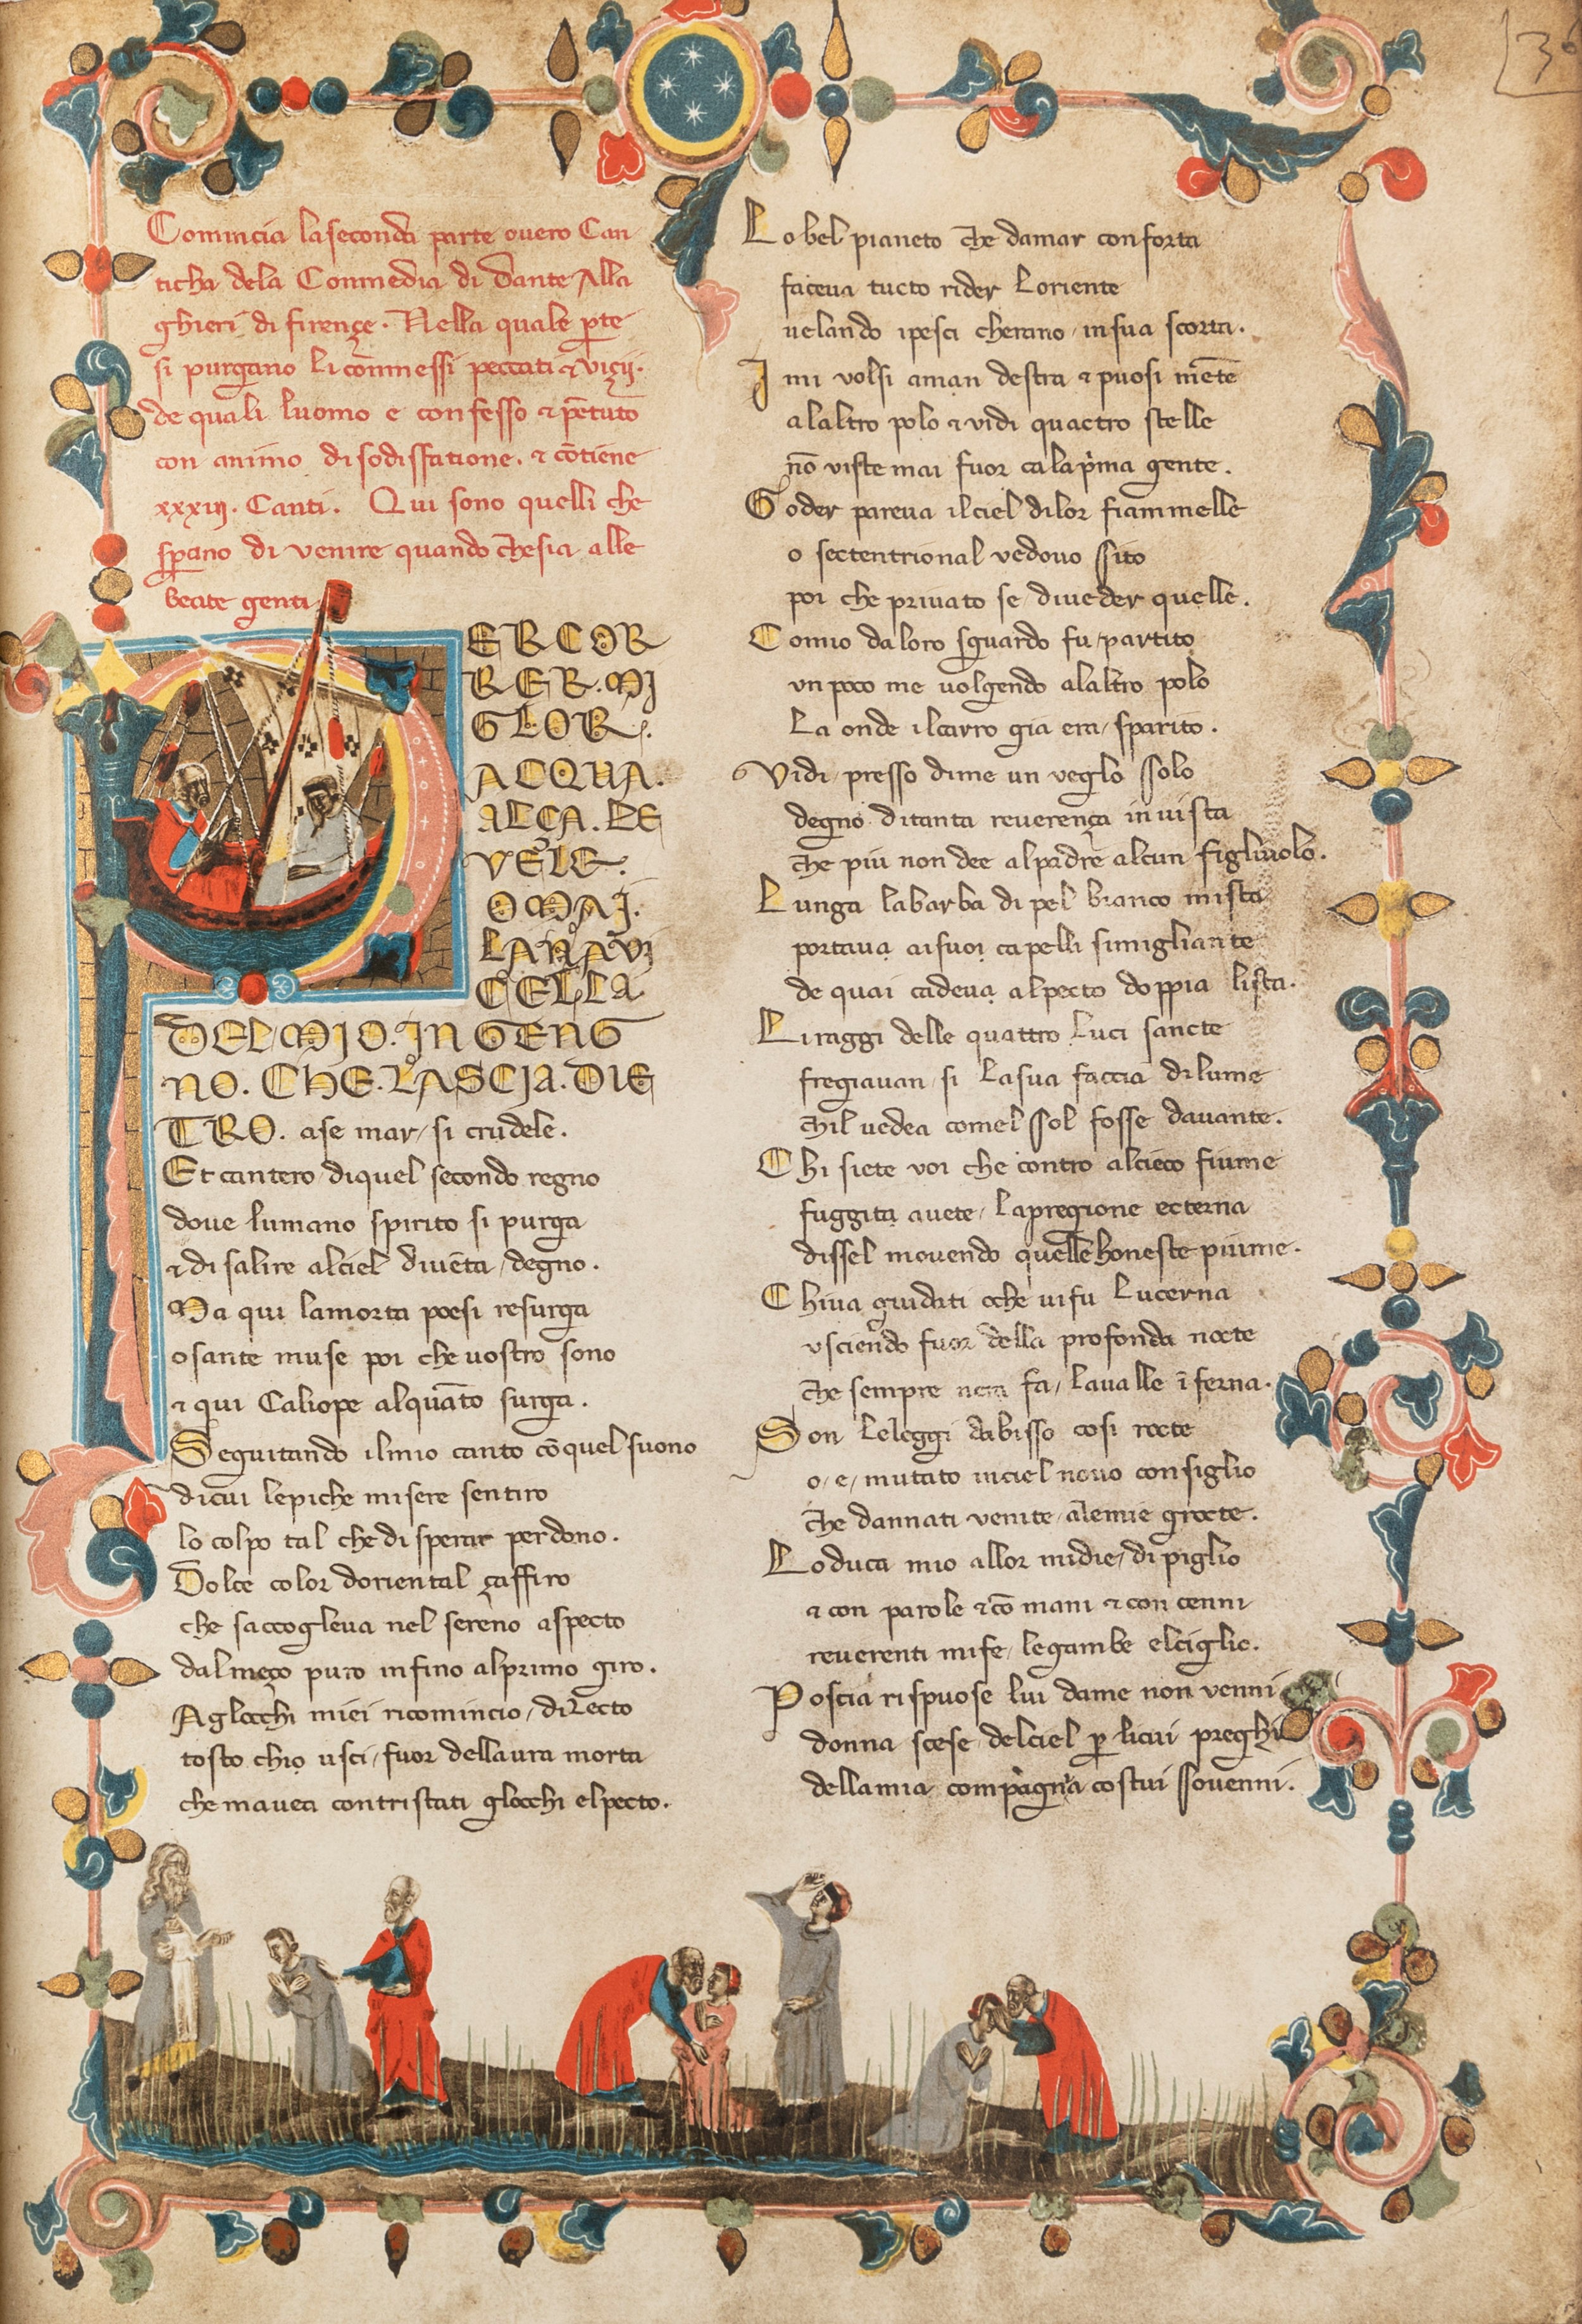 Comincia la seconda parte overo Can
ticha dela Commedia di Dante Alla
ghieri di firençe. Nella quale parte
si purgano li commessi peccati & viçij.
de quali luomo e confesso & pentuto
con animo di sodisfatione. & contiene
xxxiij. Canti. Qui sono quelli che
sperano di venire quando che sia alle
beate genti.
PER COR
RER. MI
GLOR.
ACQUA.
ALÇA. LE
VELE.
OMAI.
LA NAVI
CELLA
DEL MIO. INGENG
NO. CHE. LASCIA. DIE
TRO. a se mar si crudele.
Et cantero di quel secondo regno
dove lumano spirito si purga
& di salire al ciel diventa degno.
Ma qui la morta poesi resurga
o sante muse poi che vostro sono
& qui Caliope alquanto surga.
Seguitando il mio canto con quel suono
di cui le piche misere sentiro
lo colpo tal che disperar perdono.
Dolce color doriental çaffiro
che saccogleva nel sereno aspecto
dal meço puro infino al primo giro.
A glocchi miei ricomincio dilecto
tosto chio usci fuor dellaura morta
che mavea contristati glocchi el pecto.
36
Lo bel pianeto che damar conforta
faceva tucto rider loriente
velando i pesci cherano in sua scorta.
I mi volsi a man destra & puosi mente
a laltro polo & vidi quactro stelle
non viste mai fuor ca la prima gente.
Goder pareva il ciel di lor fiammelle
o sectentrional vedovo sito
poi che privato se di veder quelle.
Comio da loro sguardo fu partito
un poco me volgendo a laltro polo
la onde il carro gia era sparito.
Vidi presso di me un veglo solo
degno di tanta reverença in vista
che piu non dee al padre alcun figliuolo.
Lunga la barba di pel bianco mista
portava ai suoi capelli simigliante
de quai cadeva al pecto doppia lista.
Li raggi delle quattro luci sancte
fregiavan si la sua faccia di lume
chil vedea comel sol fosse davante.
Chi siete voi che contro al cieco fiume
fuggita avete la pregione ecterna
dissel movendo quelle honeste piume.
Chi va guidati o che vi fu lucerna
uscendo fuor della profonda nocte
che sempre nera fa la valle inferna.
Son le leggi dabisso cosi rocte
o e mutato in ciel novo consiglio
che dannati venite a le mie grocte.
Lo duca mio allor mi die di piglio
& con parole & con mani & con cenni
reverenti mi fe le gambe el ciglio.
Poscia rispuose lui da me non venni
donna scese del ciel per li cui preghi
della mia compagnia costui sovenni.